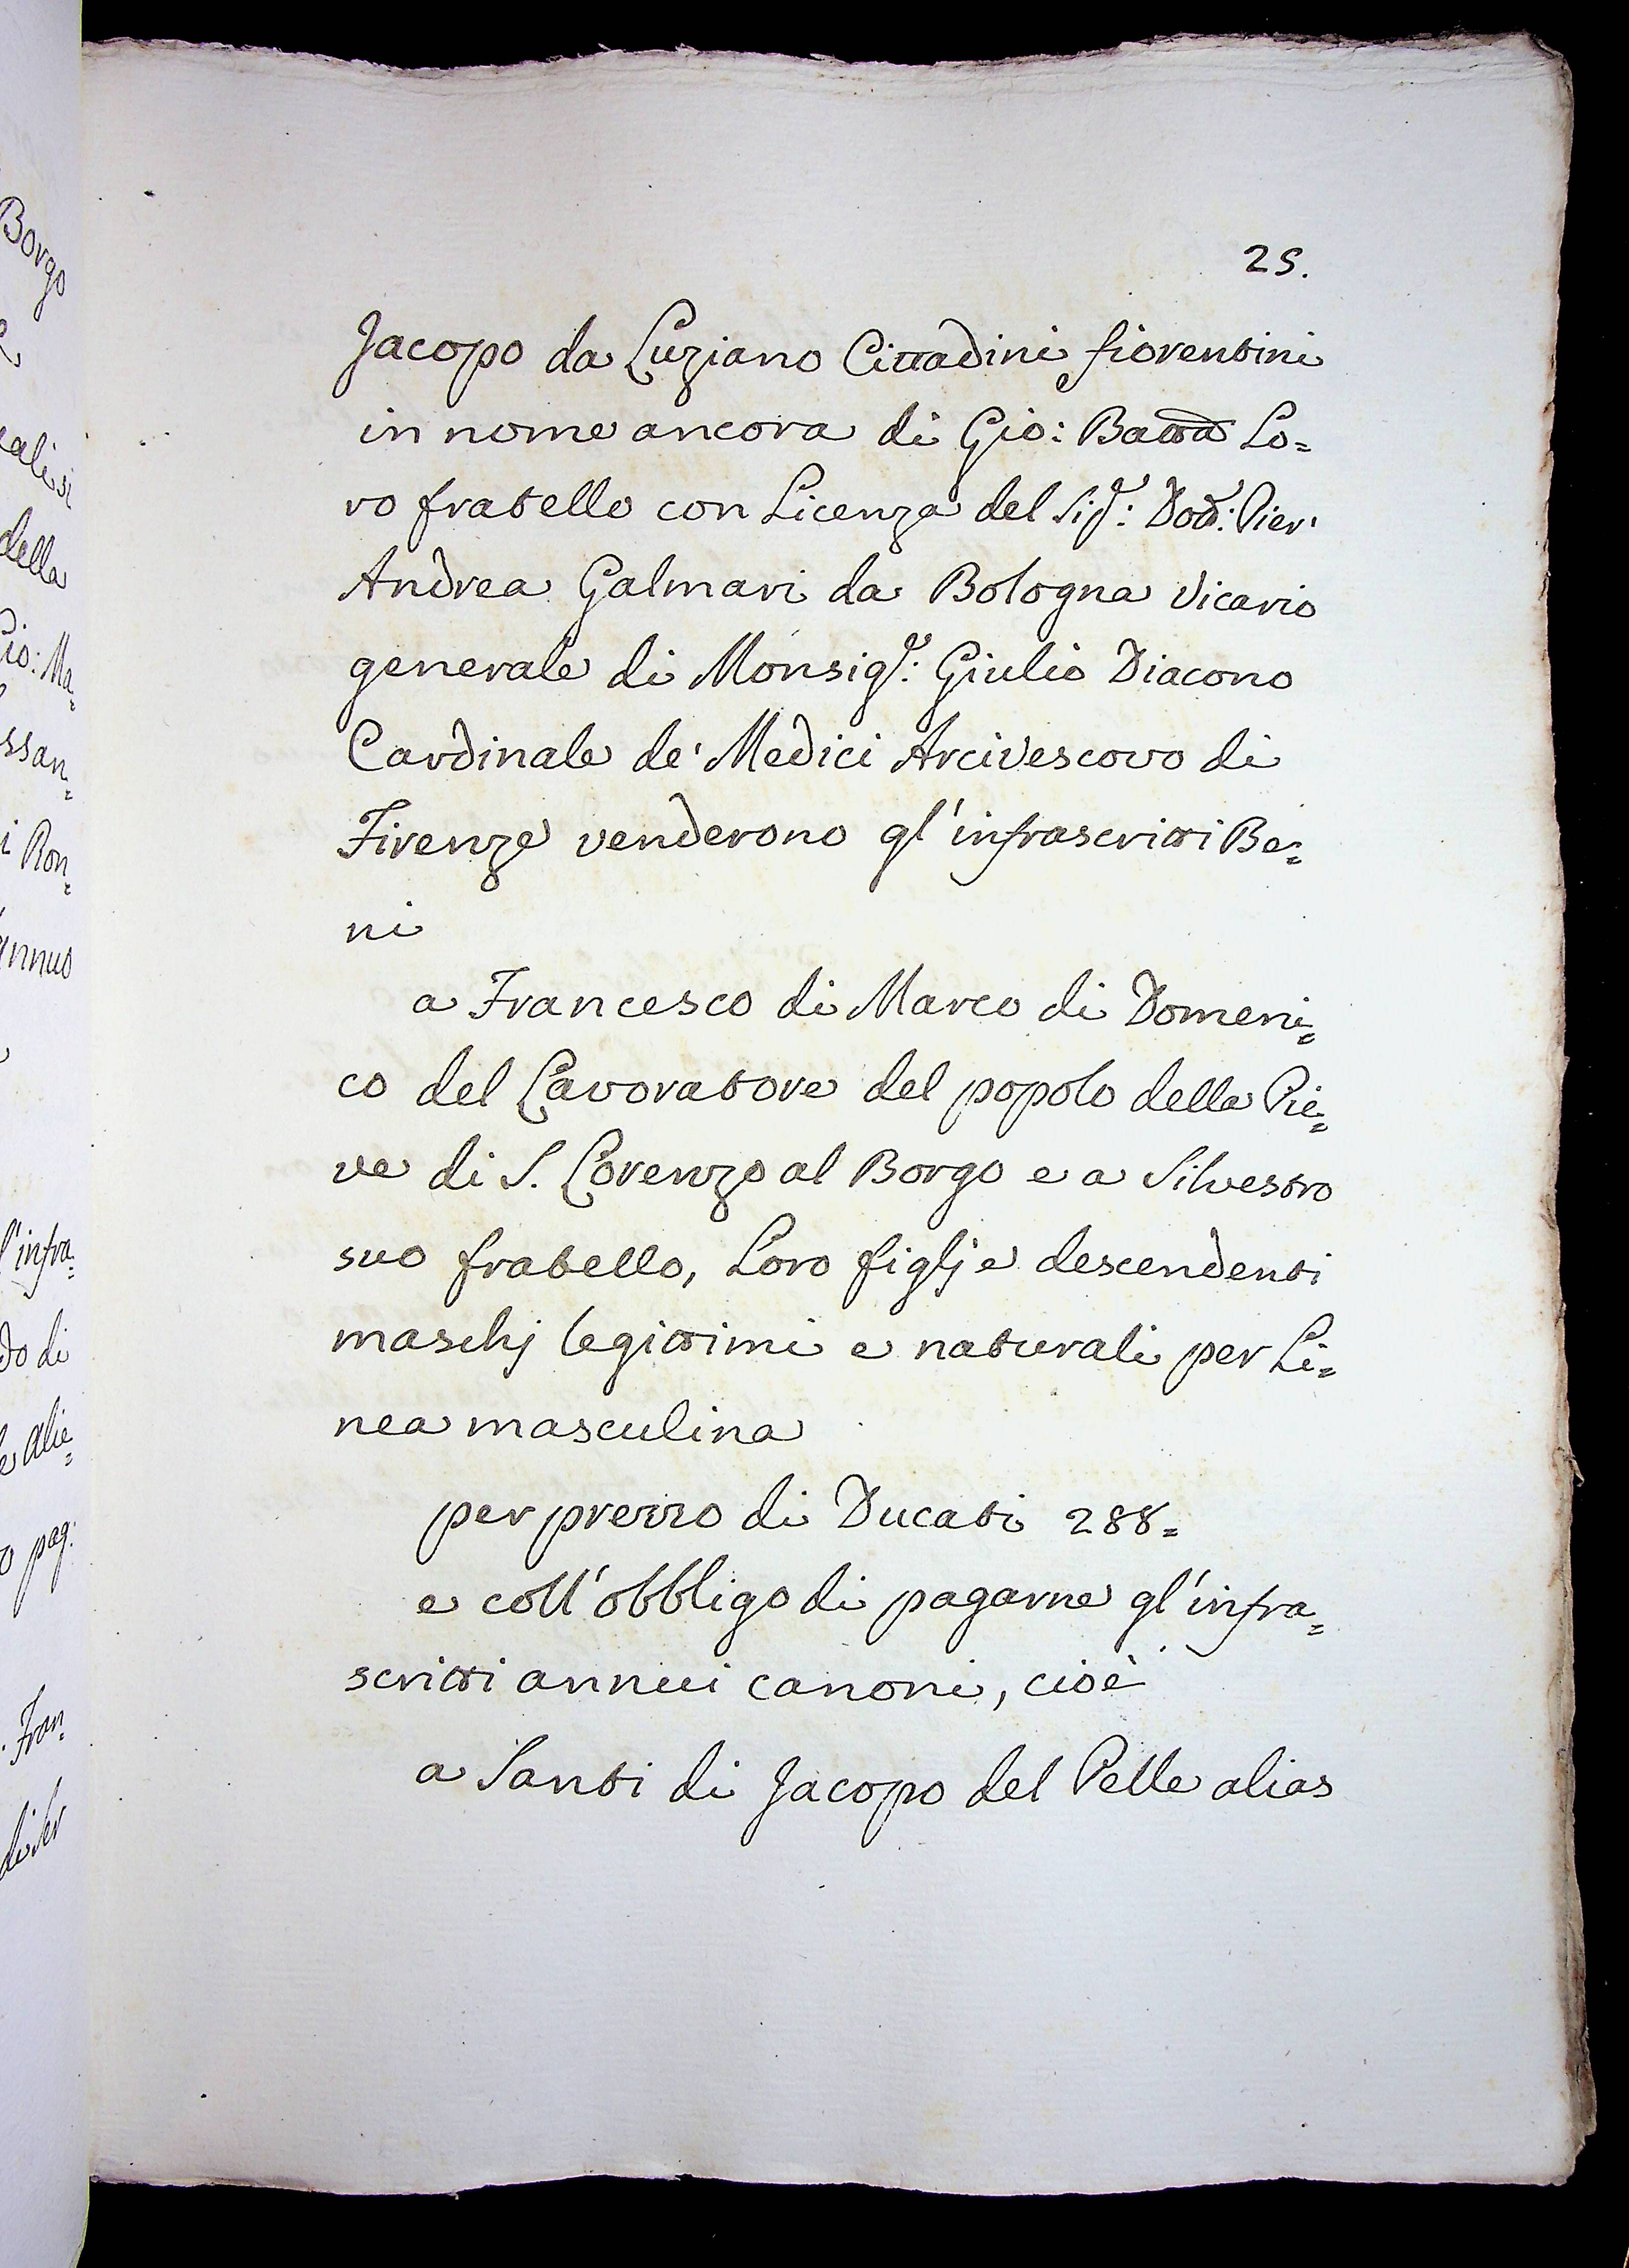 25.
Jacopo da Luziano Cittadini fiorentini
in nome ancora di Gio: Batta Lo=
ro fratello con Licenza del Sig.r: Dott: Pier'
Andrea Galmari da Bologna Vicario
generale di Monsig.r: Giulio Diacono
Cardinale de' Medici Arcivescovo di
Firenze venderono gl'infrascritti Be=
ni
a Francesco di Marco di Domeni=
co del Lavoratore del popolo della Pie=
ve di S. Lorenzo al Borgo e a Silvestro
suo fratello, Loro figlj e descendenti
maschj legittimi e naturali per Li=
nea masculina
per prezzo di Ducati 288=
e coll'obbligo di pagarne gl'infra=
scritti annui canoni, cioè
a Santi di Jacopo del Pelle alias